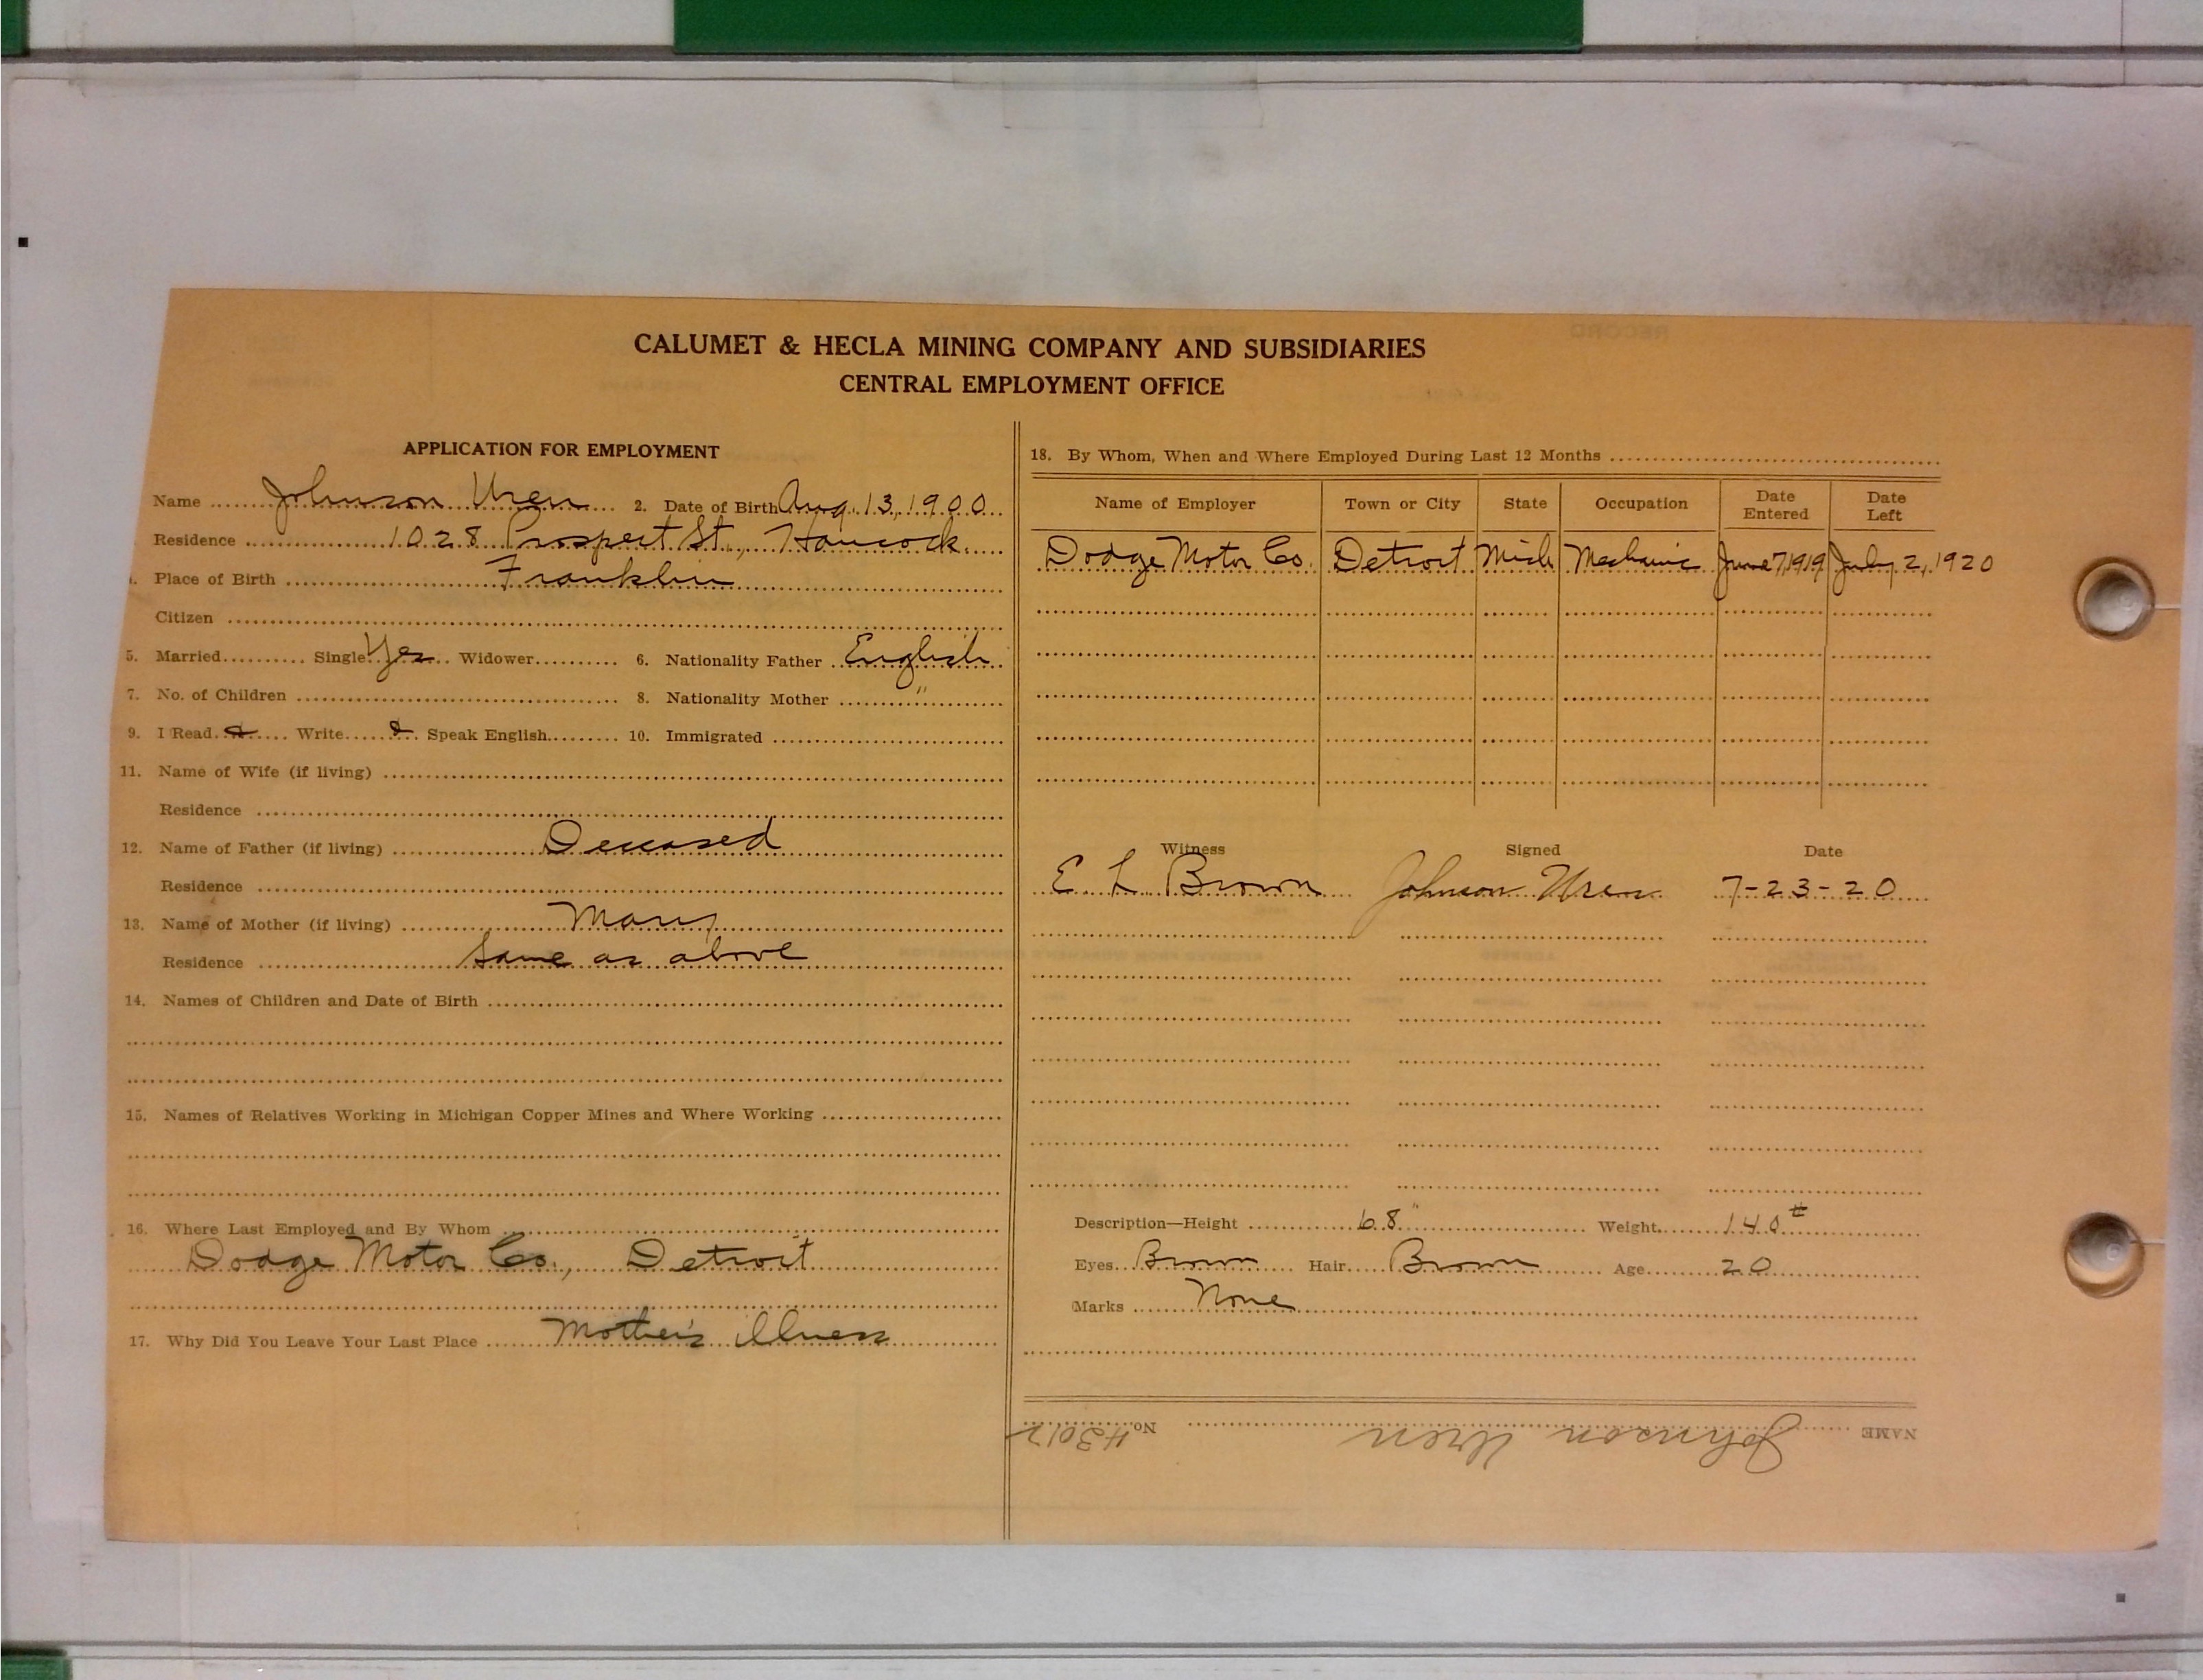 CALUMET & HECLA MINING COMPANY AND SUBSIDIARIES
CENTRAL EMPLOYMENT OFFICE
APPLICATION FOR EMPLOYMENT
Name Johnson Uren 2. Date of Birth Aug. 13, 1900
Residence 1028 Prospect St., Hancock
Place of Birth Franklin
Citizen
5. Married Single Yes Widower 6. Nationality Father English
7. No. of Children 8. Nationality Mother "
9. I Read & Write & Speak English 10. Immigrated
11. Name of Wife (if living)
Residence
12. Name of Father (if living) Deceased
Residence
13. Name of Mother (if living) Mary
Residence Same as above
14. Names of Children and Date of Birth
15. Names of Relatives Working in Michigan Copper Mines and Where Working
16. Where Last Employed and By Whom
Dodge Motor Co., Detroit
17. Why Did You Leave Your Last Place Mother's illness
18. By Whom, When and Where Employed During Last 12 Months
Name of Employer Town or City State Occupation Date Entered Date Left
Dodge Motor Co. Detroit Mich Mechanic June 7, 1919 July 2, 1920
Witness Signed Date
E L Brown Johnson Uren 7-23-20
Description—Height 68" Weight 140#
Eyes Brown Hair Brown Age 20
Marks None
NAME Johnson Uren No. 43012